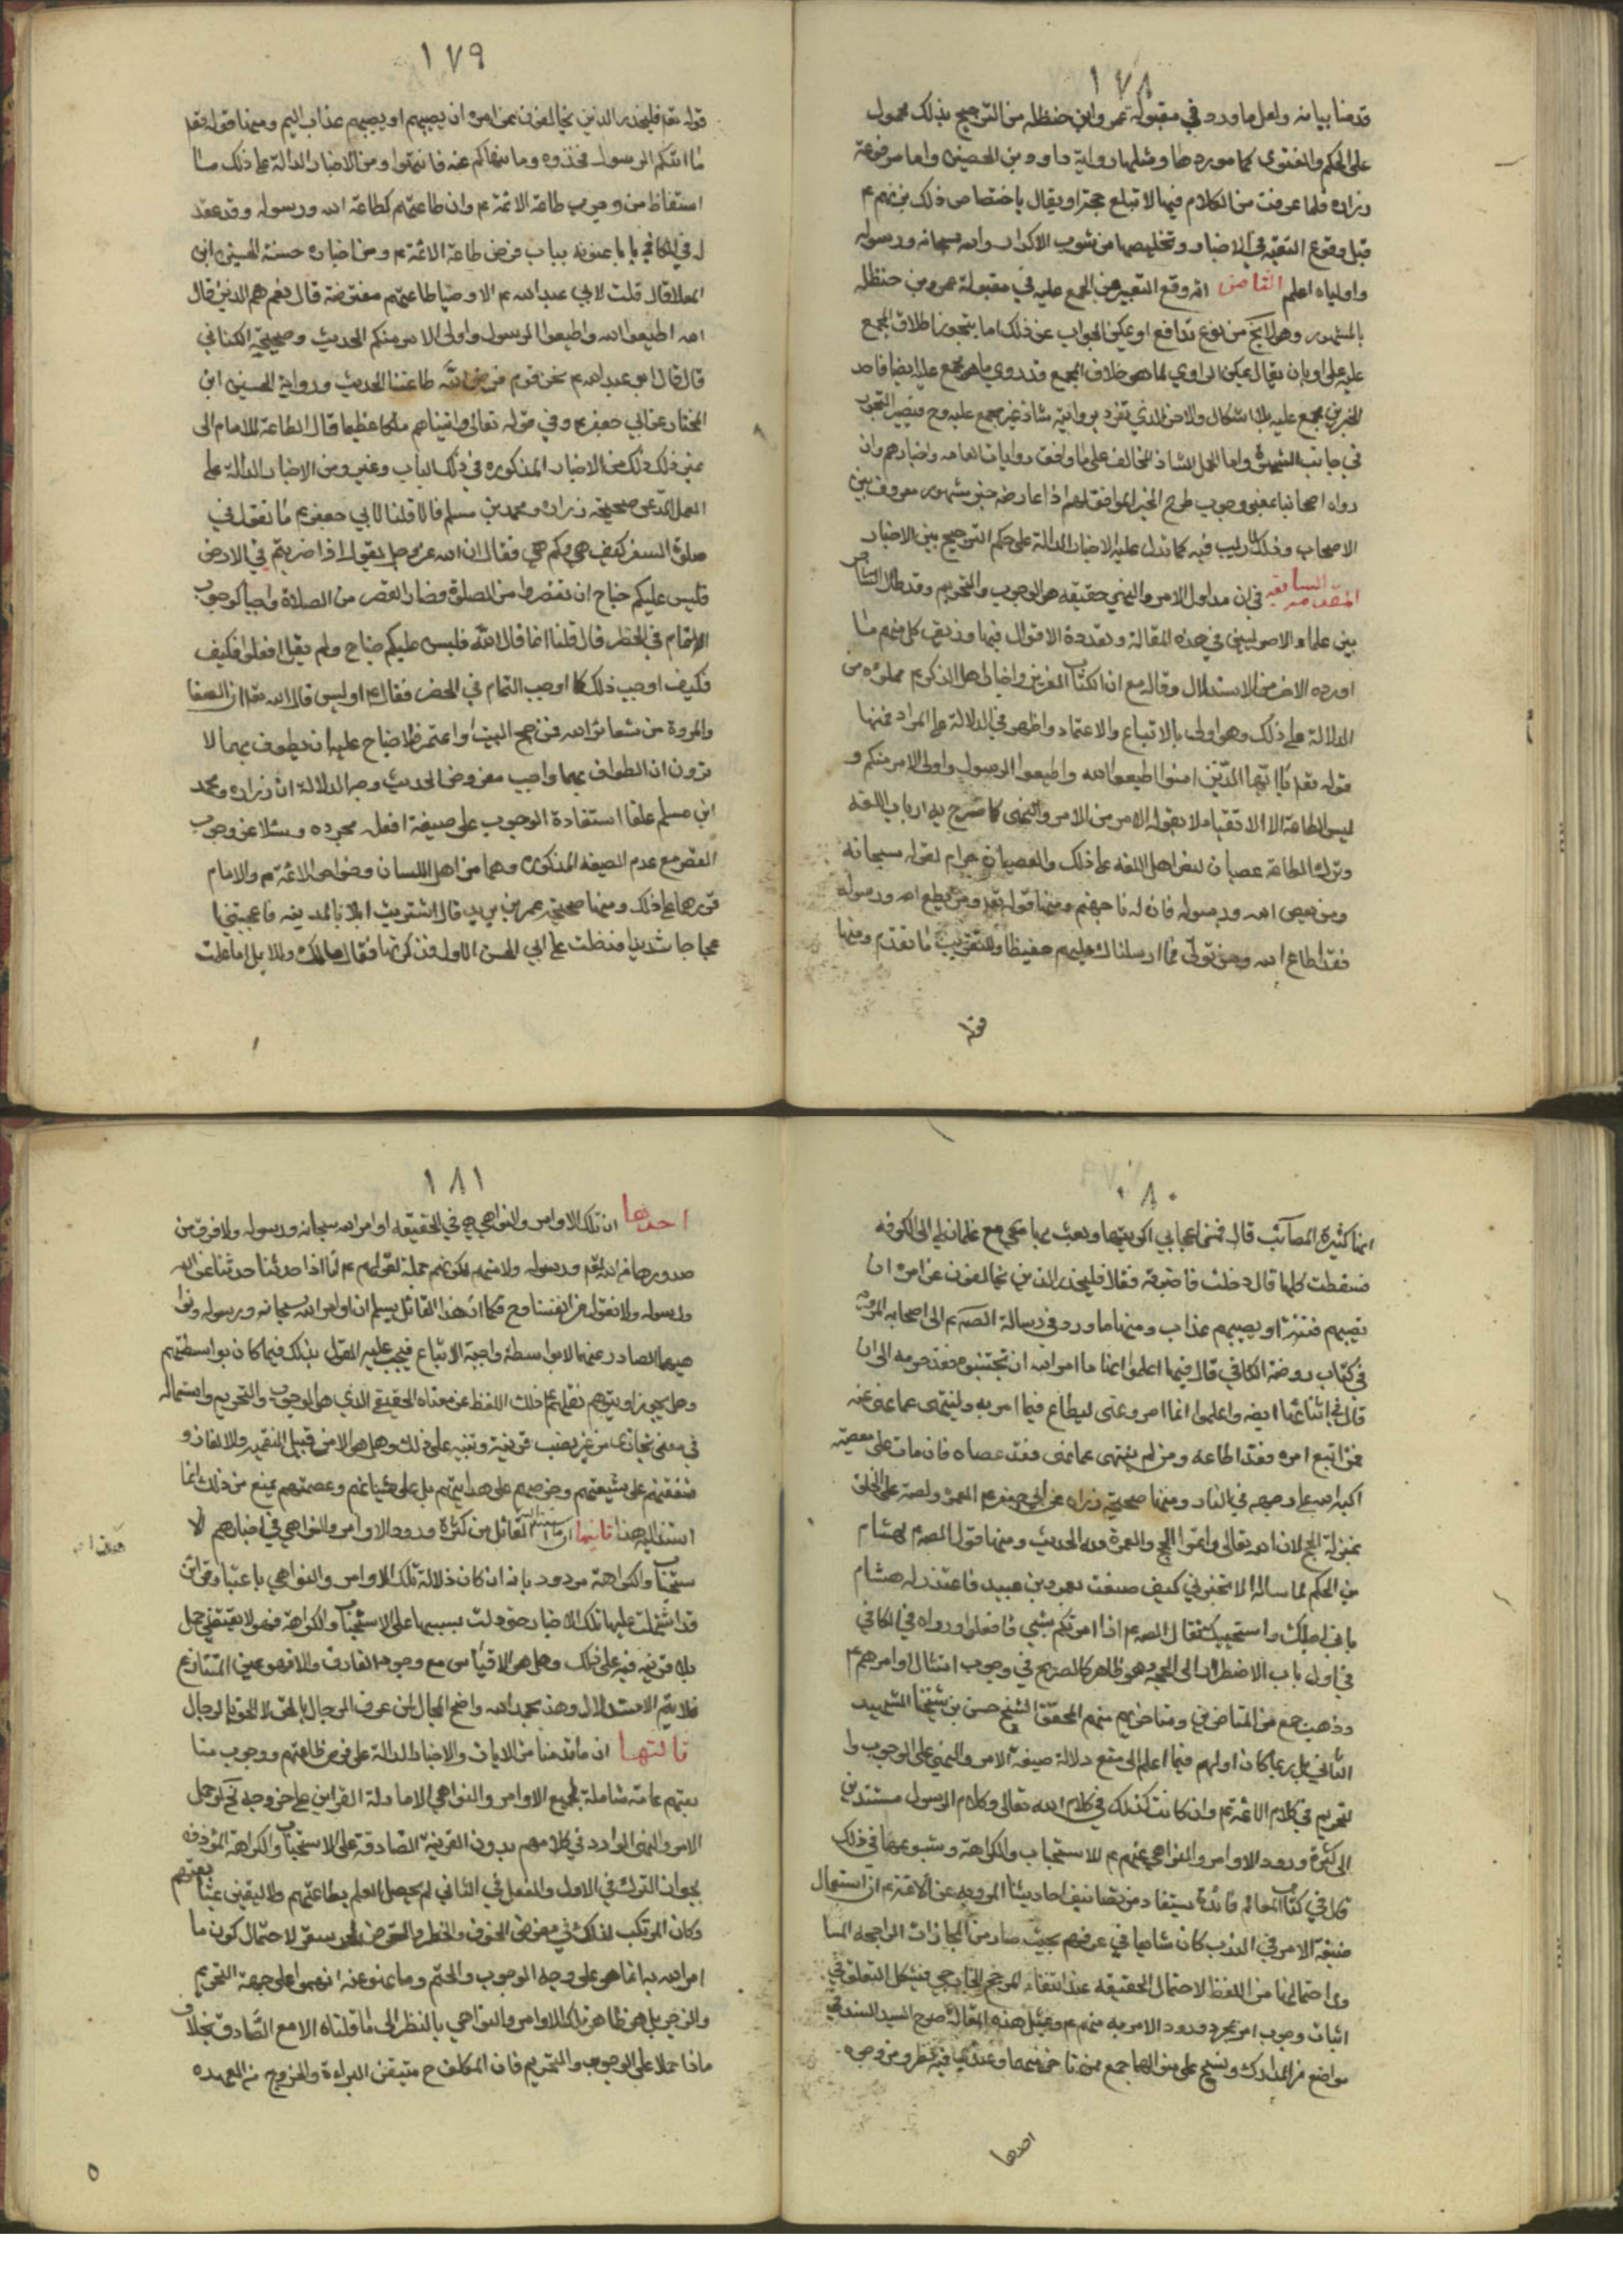 ١٧٨
قدمنا بيانه ولعل ما ورد في مقبولة عمر وابن حنظله من الترجيح بذلك محمول
على الحكم والفتوى كما هو موردها ومثلها رواية داود بن الحصين واما مرفوعة
زراره فلما عرفت من الكلام فيها لا تبلغ حجة او يقال باختصاص ذلك بزمنهم ع
قبل وقوع التنقيه في الاخبار وتخليصها من شوب الاكدار والله سبحانه ورسوله
واولياه اعلم انه وقع التعبير عن المجمع عليه في مقبولة عمرو بن حنظله
بالمشهور وهو لا يخ من نوع تدافع او يمكن الجواب عن ذلك اما بتجوز اطلاق المجمع
عليه على او بان يقال يمكن الراوي لما هو خلاف المجمع قد روي ما هو مجمع عليه ايضا فاحد
الخبرين مجمع عليه بلا اشكال والاخر الذي تفرد بروايته شاذ غير مجمع عليه وح فيصير التجوز
في جانب الشهرة واما الحمل الشاذ المخالف على ما وافق روايات العامه واخبارهم وان
رواه اصحابنا بمعنى وجوب طرح الخبر الموافق لهم اذا عارضه خبر مشهور معروف بين
الاصحاب وذلك لا ريب فيه كما تدل عليه الاخبار الدالة على حكم الترجيح بين الاخبار
المقدمه السابعه في ان مدلول الامر والنهي حقيقه هو الوجوب والتحريم وقد طال التشاجر
بين علماء الاصوليين في هذه المقالة وتعددة الاقوال فيها وزيف كل منهم ما
اورده الاخر من الاستدلال وقاله مع ان الكتاب العزيز واخبار اهل الذكر ع مملوة من
الدلالة على ذلك وهو اولى بالاتباع والاعتماد واظهر في الدلالة على المراد فمنها
قوله تعم يا ايها الذين امنوا اطيعوا الله واطيعوا الرسول واولى الامر منكم و
ليس الطاعة الا الانقياد لما يقوله الامر من الامر والنهي كما صرح به ارباب اللغه
وترك الطاعة عصيان لنص اهل اللغه على ذلك والعصيان حرام لقوله سبحانه
ومن يعص الله ورسوله فان له نار جهنم ومنها قوله تعم ومن يطع الله ورسوله
فقد اطاع الله ومن تولى فما ارسلناك عليهم حفيظا والتقريب ما تقدم ومنها
١٧٩
قوله تعم فليحذر الذين يخالفون عن امره ان يصيبهم او يصيبهم عذاب اليم ومنها قوله تعم
ما اتيكم الرسول فخذوه وما نهاكم عنه فانتهوا ومن الاخبار الدالة على ذلك ما
استفاض من وجوب طاعة الائمة ع وان طاعتهم كطاعة الله ورسوله وقد عقد
له في الكافي بابا عنونه بباب فرض طاعة الائمة ع ومن اخباره حسنة الحسين ابن
العلا قال قلت لابي عبد الله ع الاوصيا طاعتهم مفترضة قال نعم هم الذين قال
الله اطيعوا الله واطيعوا الرسول واولى الامر منكم الحديث وصحيحة الكناني
قال قال ابو عبد الله ع نحن قوم فرض الله طاعتنا الحديث ورواية الحسين ابن
المختار عن ابي جعفر ع وفي قوله تعالى واتيناهم ملكا عظيما قال الطاعة للامام الى
غير ذلك من الاخبار المذكوره في ذلك الباب وغيره ومن الاخبار الدالة على
صحيحة زراره ومحمد بن مسلم قالا قلنا لابي جعفر ع ما تقول في
صلوة السفر كيف هي وكم هي فقال ان الله عز وجل يقول اذا ضربتم في الارض
فليس عليكم جناح ان تقصروا من الصلوة فصار القصر من الصلاة واجبا كوجوب
الاتمام في الحضر قال قلنا انما قال الله فليس عليكم جناح ولم يقل افعلوا فكيف
فكيف اوجب ذلك كما اوجب التمام في الحضر فقال ع اوليس قال الله تعم ان الصفا
والمروة من شعائر الله فمن حج البيت واعتمر فلا جناح عليه ان يطوف بهما الا
ترون ان الطواف بهما واجب مفروض الحديث وجه الدلالة ان زراره ومحمد
ابن مسلم علقا استفادة الوجوب على صيغة افعل مجرده وسئلا عن وجوب
القصر مع عدم الصيغه المذكوره وهما من اهل اللسان وخواص الائمة ع والامام
قررهما على ذلك ومنها صحيحة عمر بن يزيد قال اشتريت ابلا بالمدينه فاعجبتني
عجبا شديدا فدخلت على ابي الحسن الاول فذكرتها فقال مالك وللابل اما علمت
١٨٠
انها كثيرة المصائب قال فمن اعجابي اكريتها وبعث بها معي مع غلمان لي الى الكوفه
فسقطت كلها قال دخلت فاخبرته فقال فليحذر الذين يخالفون عن امره ان
تصيبهم فتنة او يصيبهم عذاب ومنها ما ورد في رسالة الصم ع الى اصحابه المرويه
في كتاب روضة الكافي قال فيها اعلموا انما ما امر الله ان تجتنبوه فقد حرمه الى ان
قال في اثنائها ايضه واعلموا انما امر ونهى ليطاع فيما امر به ولينتهى عما نهى عنه
فمن اتبع امره فقد اطاعه ومن لم ينته عما نهى فقد عصاه فان مات على معصيته
اكبه الله على وجهه في النار ومنها صحيحة زراره عن ابي جعفر ع العمرة واجبة على الخلق
بمنزلة الحج لان الله تعالى واتموا الحج والعمرة لله الحديث ومنها قول الصم ع لهشام
بن الحكم لما ساله الا تخبرني كيف صنعت بعمرو بن عبيد فاعتذر له هشام
باني اجلك واستحييك فقال الصم ع اذا امرتكم بشيء فافعلوا ورواه في الكافي
في اول باب الاضطرار الى الحجه وهو ظاهر كالصريح في وجوب امتثال اوامرهم ع
وذهب جمع من المتاخرين ومتاخريهم منهم المحقق الشيخ حسن بن شيخنا الشهيد
الثاني بل ربما كان اولهم فيما اعلم الى منع دلالة صيغة الامر والنهي على الوجوب وا
لتحريم في كلام الائمة ع وان كانت كذلك في كلام الله تعالى وكلام الرسول مستندين
الى كثرة ورود الاوامر والنواهي عنهم ع للاستحباب والكراهة وشيوعها في ذلك
قال في كتاب المعالم فائدة يستفاد من تضاعيف احاديثنا المرويه عن الائمة ع ان استعمال
صيغة الامر في الندب كان شايعا في عرفهم بحيث صار من المجازات الراجحه المسا
وى احتمالها من اللفظ لاحتمال الحقيقه عند انتفاء المرجح الخارجي فيشكل التعلق في
اثبات وجوب امر بمجرد ورود الامر به منهم ع وبمثل هذه المقالة صرح السيد السند في
مواضع من المدارك ونسج على منوالهما جمع ممن تاخر عنهما وعندي فيه نظر من وجوه
احدها
١٨١
احدها ان تلك الاوامر والنواهي هي في الحقيقه اوامر الله سبحانه ورسوله ولا فرق بين
صدورها من الله تعم ورسوله ولا منهم لكونهم حملة لقولهم ع انا اذا حدثنا حدثنا عن الله
ورسوله ولا نقول من انفسنا وح فكما ان هذا القائل يسلم ان اوامر الله سبحانه ورسوله ونوا
هيهما الصادر عنهما لا بواسطة واجبة الاتباع فيجب عليه القول بذلك فيما كان بواسطتهم
وهل يجوز او يتوهم نقلهم ع ذلك اللفظ عن معناه الحقيقي الذي هو الوجوب والتحريم واستعماله
في معنى مجازى من غير نصب قرينة وتنبيه على ذلك وهل هو الا من قبيل التعميه والالغاز و
شفقتهم على شيعتهم وحرصهم على هدايتهم بل علو شانهم وعصمتهم يمنع من ذلك انما
استند اليه هذا ثانيها ان ما القائل من كثرة ورود الاوامر والنواهي في اخبارهم للا
ستحباب والكراهة مردود بانه ان كان دلالة تلك الاوامر والنواهي باعتبار قرائن
قد اشتملت عليها تلك الاخبار حتى دلت بسببها على الاستحباب والكراهة فهو لا يقتضي حمل
بلا قرينه فيه على ذلك وهل هو الا قياس مع وجود الفارق والا فهو عين المتنازع
فلا يتم الاستدلال وهذ بحمد الله واضح المجال لمن عرف الرجال بالحق لا الحق بالرجال
ثالثها ان ما قدمنا من الايات والاخبار الدالة على فرض طاعتهم ووجوب متا
بعتهم عامة شاملة لجميع الاوامر والنواهي الا ما دلة القراين على خروجه فح لو حمل
الامر والنهى الوارد في كلامهم بدون القرينة الصادقة على الاستحباب والكراهة المؤذنه
بجواز الترك في الاول والفعل في الثاني لم يحصل العلم بطاعتهم ولا اليقين بمتابعتهم
وكان المرتكب لذلك في معرض الخوف والخطر والتعرض لحر سقر لاحتمال كون ما
امر الله به انما هو على وجه الوجوب والحتم وما نهو عنه انهموا على جهة التحريم
والزجر بل هو ظاهر تلك الاوامر والنواهي بالنظر الى ما قلناه الا مع الصادق بخلاف
ماذا حملا على الوجوب والتحريم فان المكلف ح متيقن البراءة والخروج من العهده